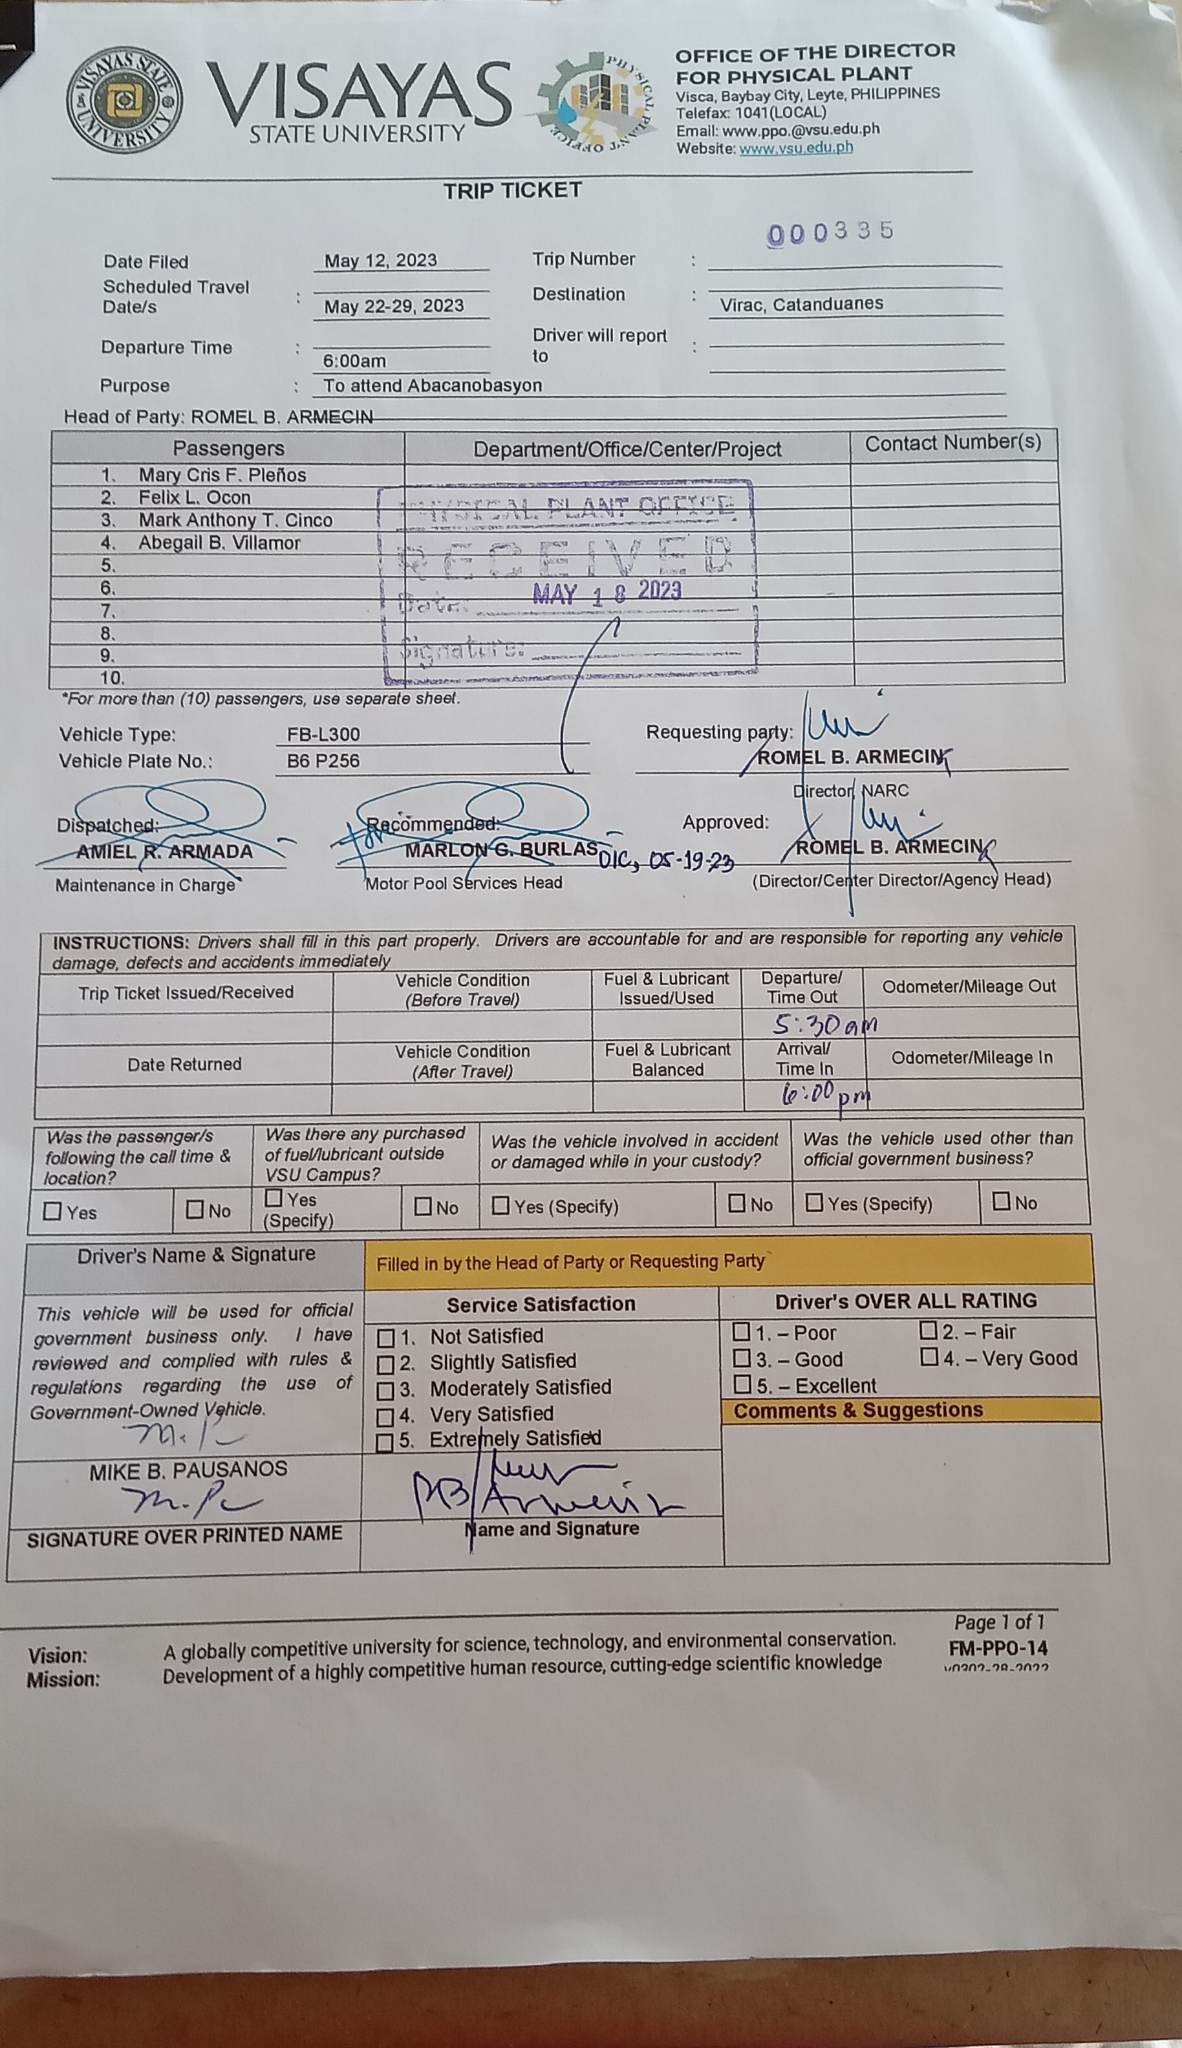 VISAYAS STATE UNIVERSITY
VISAYAS
STATE UNIVERSITY
PHYSICAL PLANT OFFICE
OFFICE OF THE DIRECTOR
FOR PHYSICAL PLANT
Visca, Baybay City, Leyte, PHILIPPINES
Telefax: 1041(LOCAL)
Email: www.ppo.@vsu.edu.ph
Website: www.vsu.edu.ph
TRIP TICKET
000335
Date Filed May 12, 2023 Trip Number :
Scheduled Travel Date/s : May 22-29, 2023 Destination : Virac, Catanduanes
Departure Time : 6:00am Driver will report to :
Purpose : To attend Abacanobasyon
Head of Party: ROMEL B. ARMECIN
Passengers Department/Office/Center/Project Contact Number(s)
1. Mary Cris F. Pleños
2. Felix L. Ocon
3. Mark Anthony T. Cinco
4. Abegail B. Villamor
5.
6.
7.
8.
9.
10.
PHYSICAL PLANT OFFICE
RECEIVED
Date: MAY 18 2023
Signature:
*For more than (10) passengers, use separate sheet.
Vehicle Type: FB-L300 Requesting party:
Vehicle Plate No.: B6 P256 ROMEL B. ARMECIN
Director, NARC
Dispatched: for Recommended: Approved:
AMIEL R. ARMADA MARLON G. BURLAS OIC, 05-19-23 ROMEL B. ARMECIN
Maintenance in Charge Motor Pool Services Head (Director/Center Director/Agency Head)
INSTRUCTIONS: Drivers shall fill in this part properly. Drivers are accountable for and are responsible for reporting any vehicle
damage, defects and accidents immediately
Trip Ticket Issued/Received Vehicle Condition (Before Travel) Fuel & Lubricant Issued/Used Departure/ Time Out Odometer/Mileage Out
5:30am
Date Returned Vehicle Condition (After Travel) Fuel & Lubricant Balanced Arrival/ Time In Odometer/Mileage In
6:00pm
Was the passenger/s following the call time & location? Was there any purchased of fuel/lubricant outside VSU Campus? Was the vehicle involved in accident or damaged while in your custody? Was the vehicle used other than official government business?
Yes No Yes (Specify) No Yes (Specify) No Yes (Specify) No
Driver's Name & Signature Filled in by the Head of Party or Requesting Party
This vehicle will be used for official
government business only. I have
reviewed and complied with rules &
regulations regarding the use of
Government-Owned Vehicle.
MIKE B. PAUSANOS
SIGNATURE OVER PRINTED NAME
Service Satisfaction
1. Not Satisfied
2. Slightly Satisfied
3. Moderately Satisfied
4. Very Satisfied
5. Extremely Satisfied
RB Armecin
Name and Signature
Driver's OVER ALL RATING
1. – Poor 2. – Fair
3. – Good 4. – Very Good
5. – Excellent
Comments & Suggestions
Page 1 of 1
Vision: A globally competitive university for science, technology, and environmental conservation. FM-PPO-14
Mission: Development of a highly competitive human resource, cutting-edge scientific knowledge